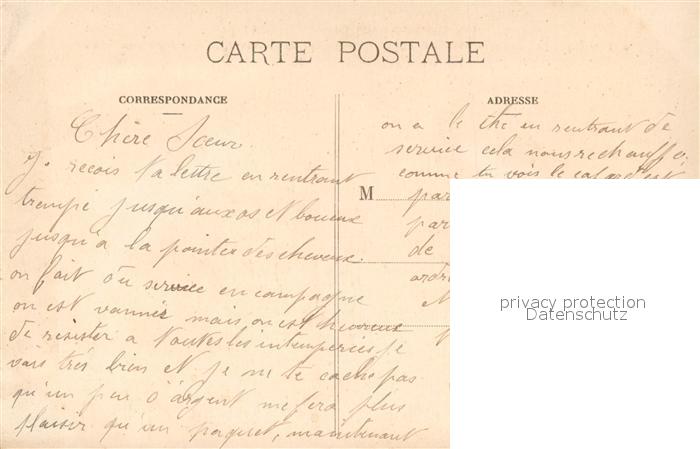 CARTE POSTALE
CORRESPONDANCE
Chère Sœur
Je reçois ta lettre en rentrant
trempé jusqu'aux os et boueux
jusqu'a la pointe des cheveux.
on fait du service en campagne
on est vannée mais on est heureux
de resister a toutes les intemperies je
vais très bien et je ne te cache pas
qu'un peu d'argent me fera plus
plaisir qu'un paquet, maintenant
ADRESSE
on a le thé en rentrant de
service cela nous rechauffe,
comme tu vois le cafard est
M
par
par
de
ardr
privacy protection
Datenschutz